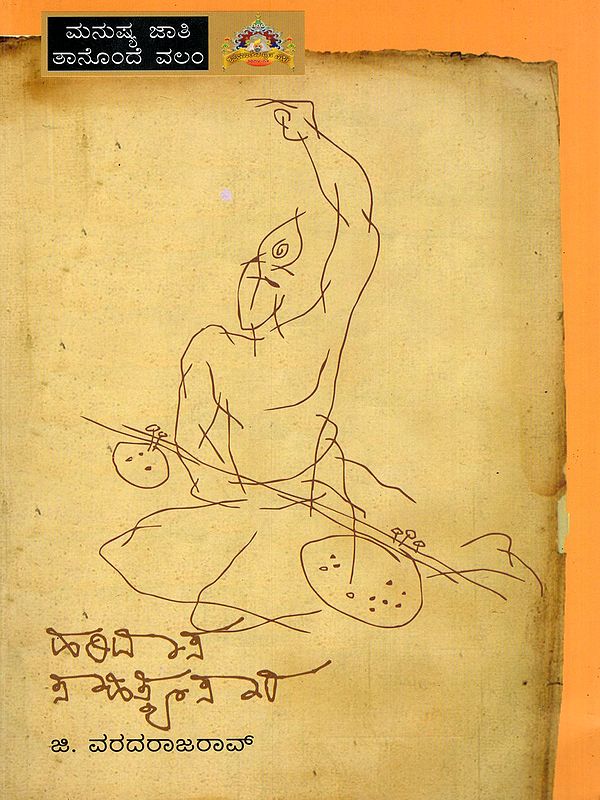 ಮನುಷ್ಯ ಜಾತಿ
ತಾನೊಂದೆ ವಲಂ
ಹರಿದಾಸ
ಸಾಹಿತ್ಯಸಾರ
ಜಿ. ವರದರಾಜರಾವ್